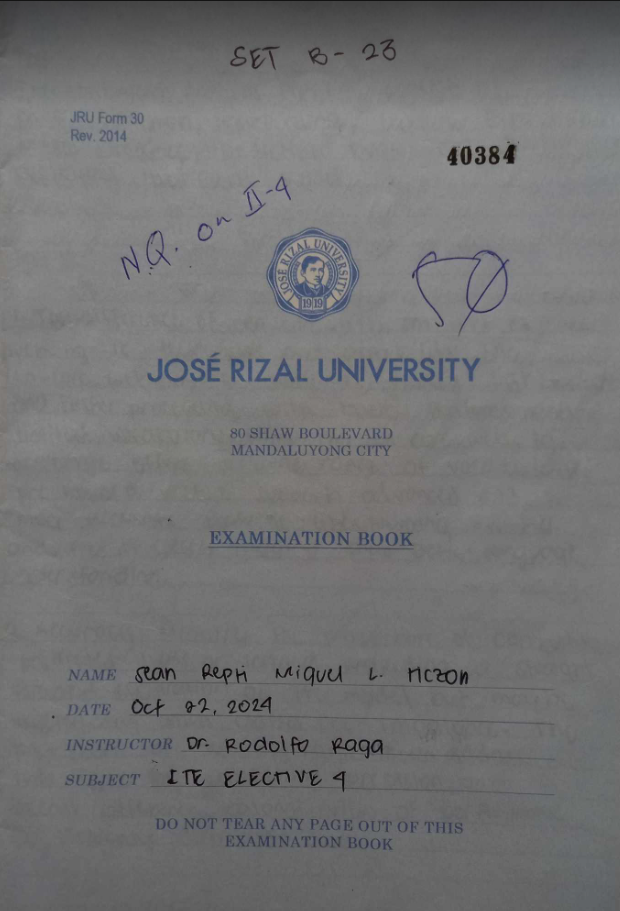 SET B - 23
JRU Form 30
Rev. 2014
40384
N.Q. on II-4
50
JOSÉ RIZAL UNIVERSITY
1919
JOSÉ RIZAL UNIVERSITY
80 SHAW BOULEVARD
MANDALUYONG CITY
EXAMINATION BOOK
NAME Sean Miguel L.
DATE Oct 22, 2024
INSTRUCTOR Dr. Rodolfo Raga
SUBJECT ITE ELECTIVE 4
DO NOT TEAR ANY PAGE OUT OF THIS
EXAMINATION BOOK